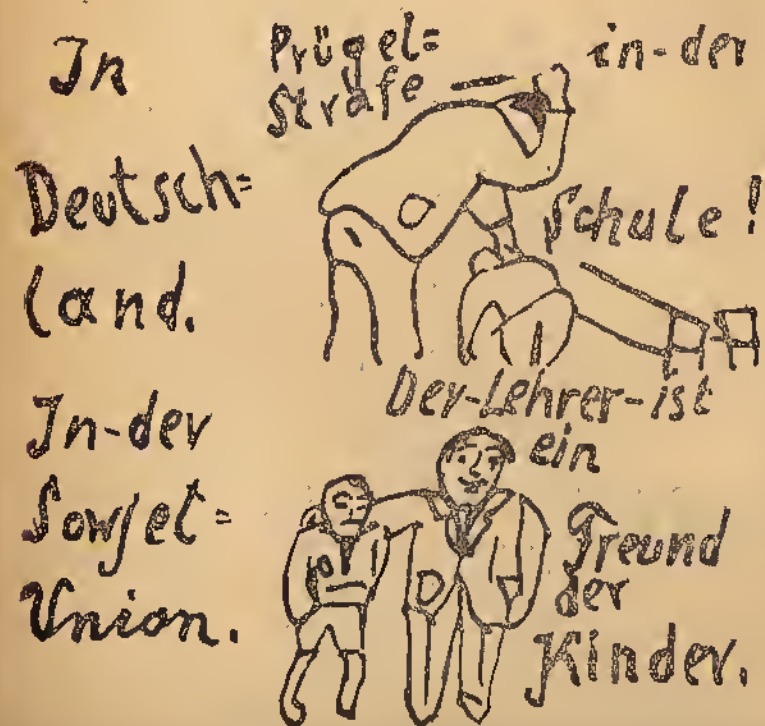 In
Deutsch=
land.
Prügel=
strafe
in-der
Schule!
In-der
Sowjet=
Union.
Der-Lehrer-ist
ein
Freund
der
Kinder.